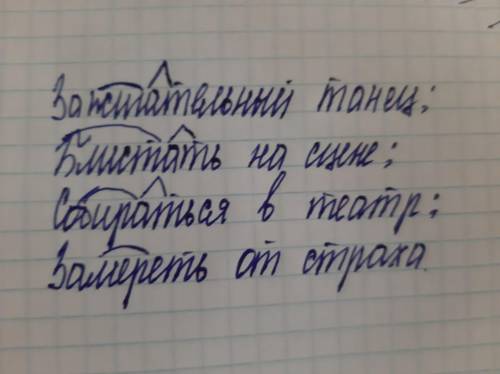 Зажигательный танец;
Блистать на сцене;
Собираться в театр;
Замереть от страха.